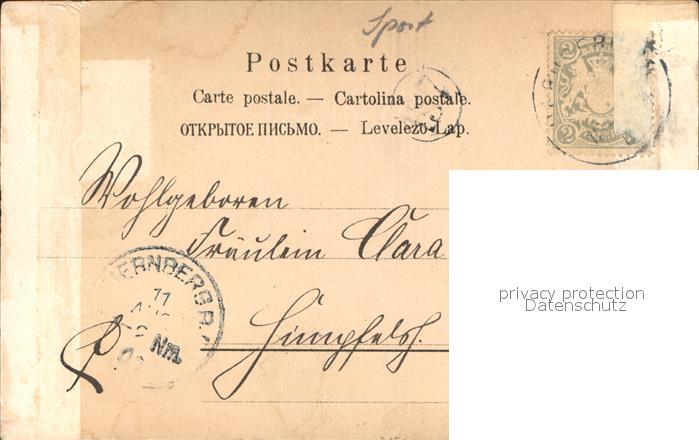 Sport
Postkarte
Carte postale. — Cartolina postale.
ОТКРЫТОЕ ПИСЬМО. — Levelezö-Lap.
2
2
Wohlgeboren
Fräulein Clara
Himpfelsh.
NUERNBERG
Nm.
privacy protection
Datenschutz